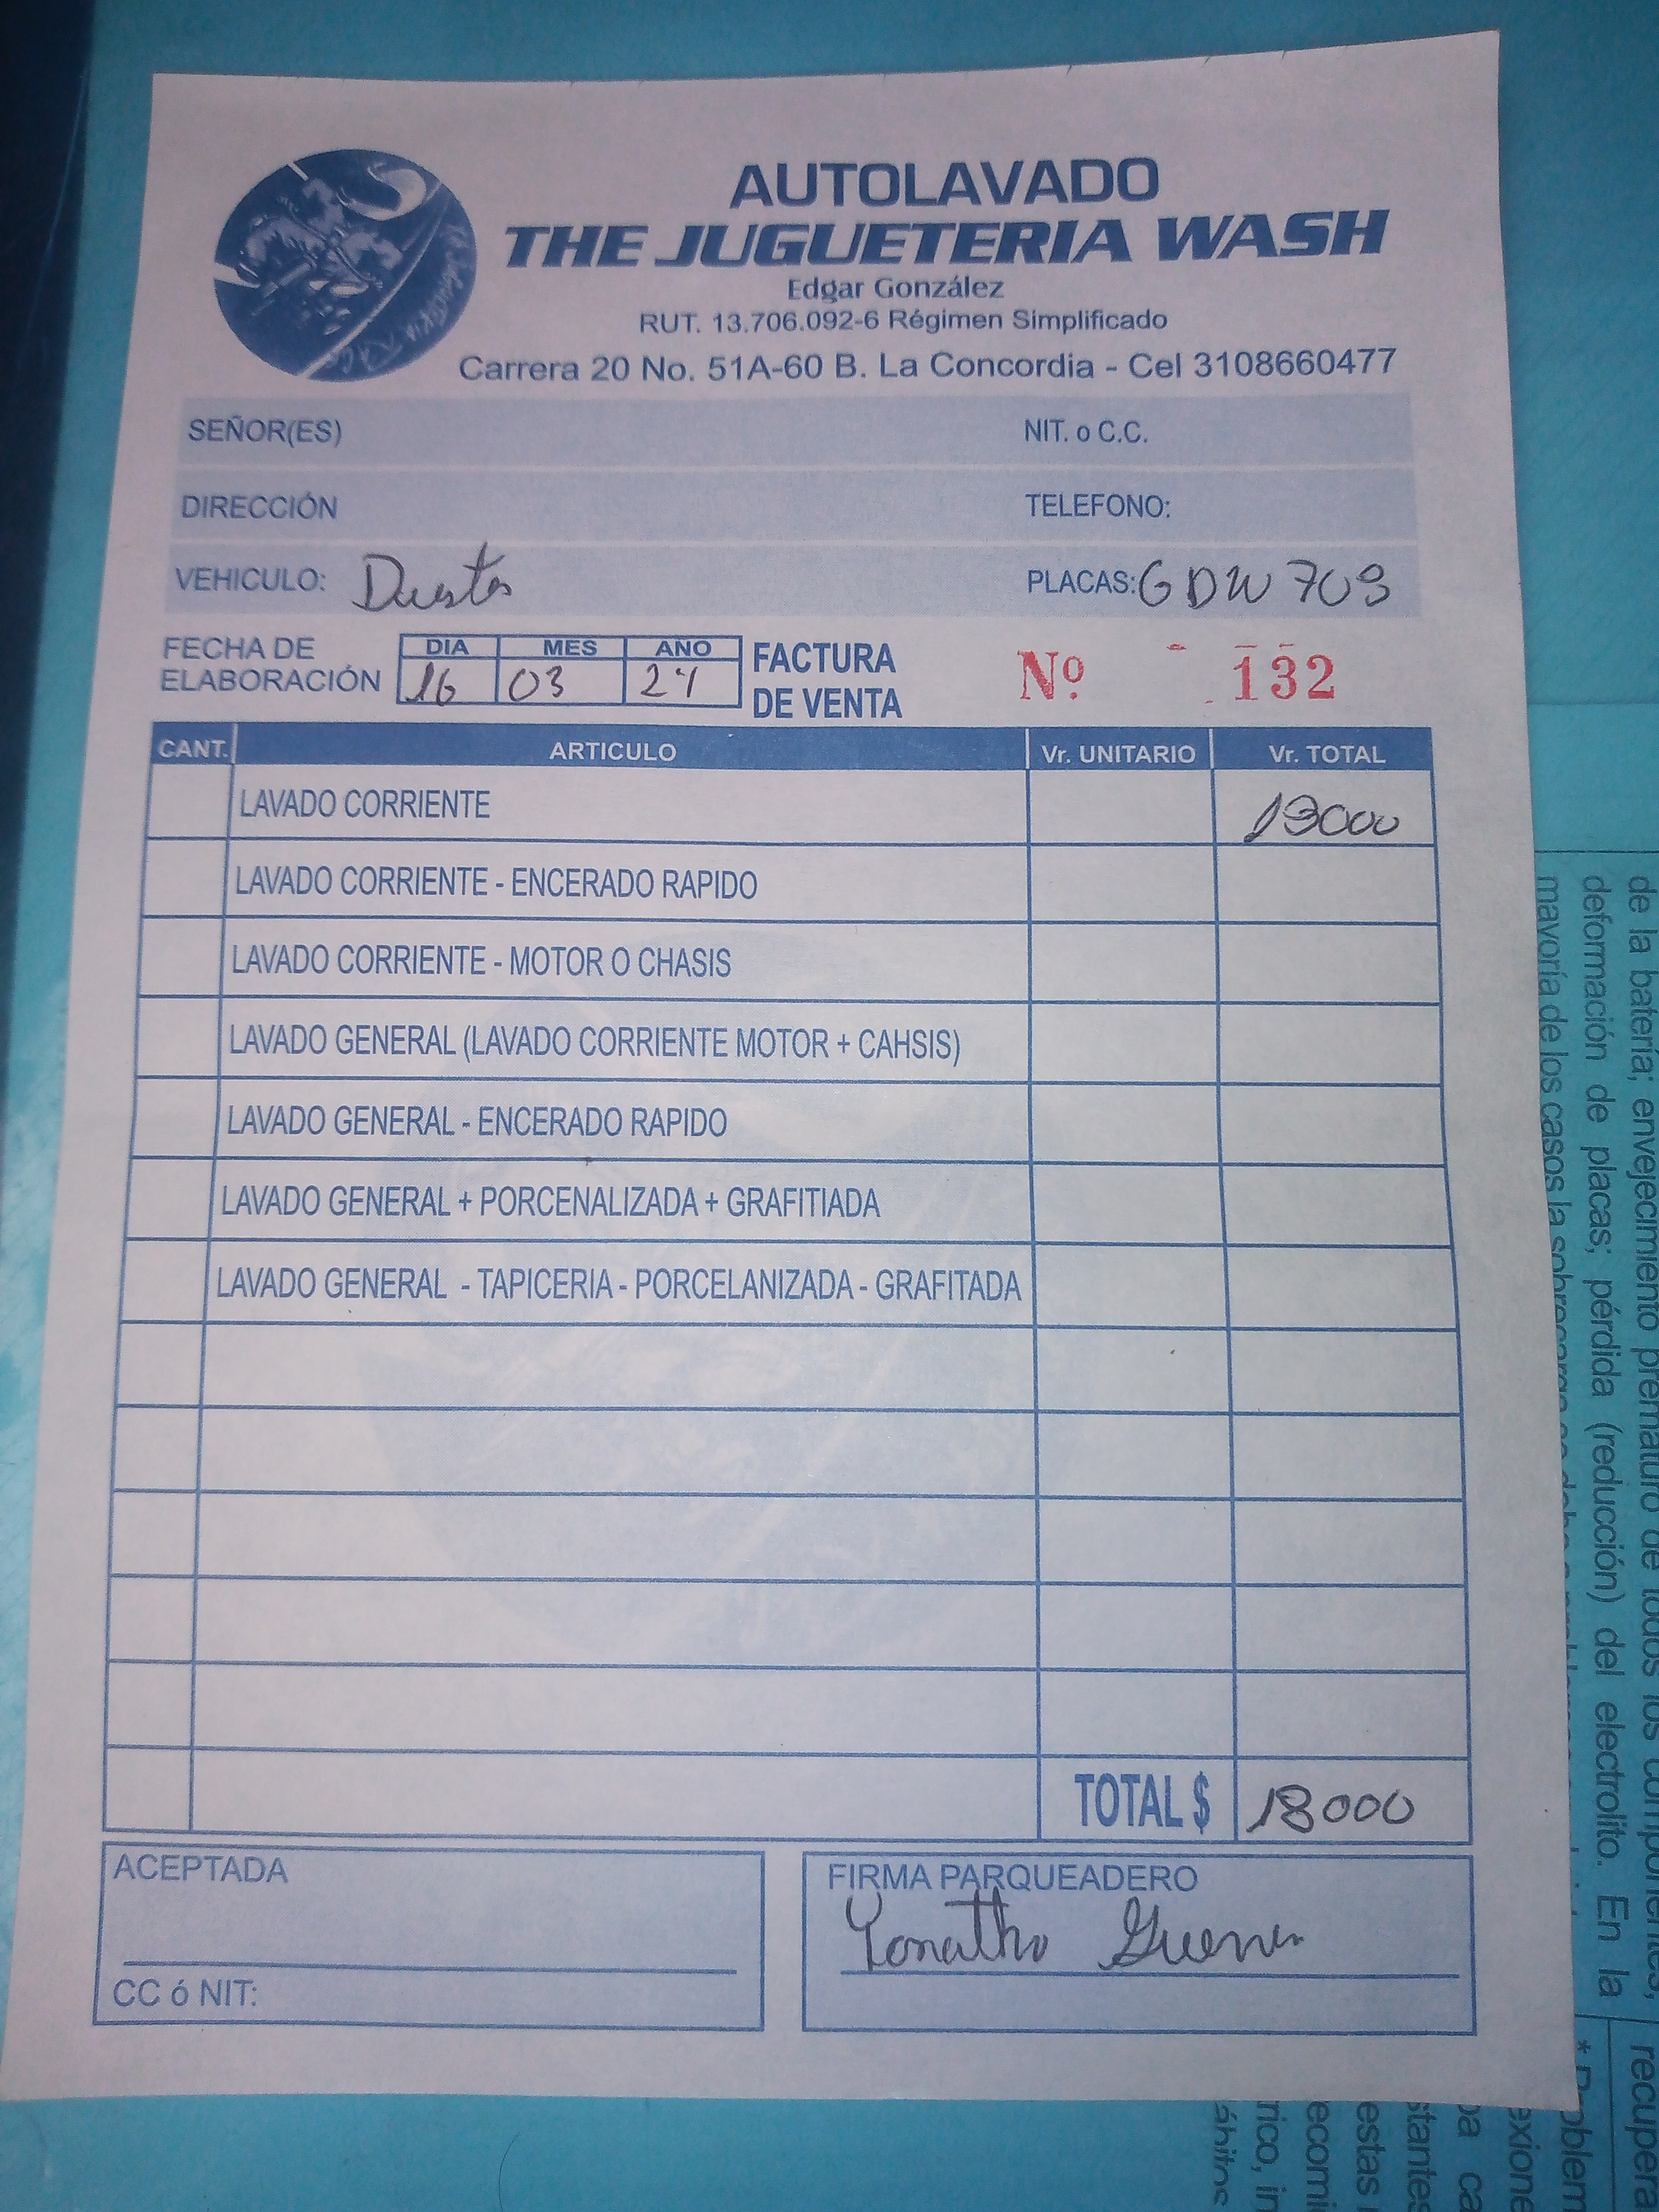 AUTOLAVADO
THE JUGUETERIA WASH
Edgar González
RUT. 13.706.092-6 Régimen Simplificado
Carrera 20 No. 51A-60 B. La Concordia - Cel 3108660477
SEÑOR(ES) NIT. o C.C.
DIRECCIÓN TELEFONO:
VEHICULO: Duster PLACAS: GDW 709
FECHA DE ELABORACIÓN DIA MES AÑO FACTURA DE VENTA Nº 132
16 03 24
CANT. ARTICULO Vr. UNITARIO Vr. TOTAL
LAVADO CORRIENTE 18000
LAVADO CORRIENTE - ENCERADO RAPIDO
LAVADO CORRIENTE - MOTOR O CHASIS
LAVADO GENERAL (LAVADO CORRIENTE MOTOR + CAHSIS)
LAVADO GENERAL - ENCERADO RAPIDO
LAVADO GENERAL + PORCENALIZADA + GRAFITIADA
LAVADO GENERAL - TAPICERIA - PORCELANIZADA - GRAFITADA
TOTAL $ 18000
ACEPTADA
CC ó NIT:
FIRMA PARQUEADERO
de la batería; envejecimiento prematuro de todos los componentes,
deformación de placas; pérdida (reducción) del electrolito. En la
mayoría de los casos la